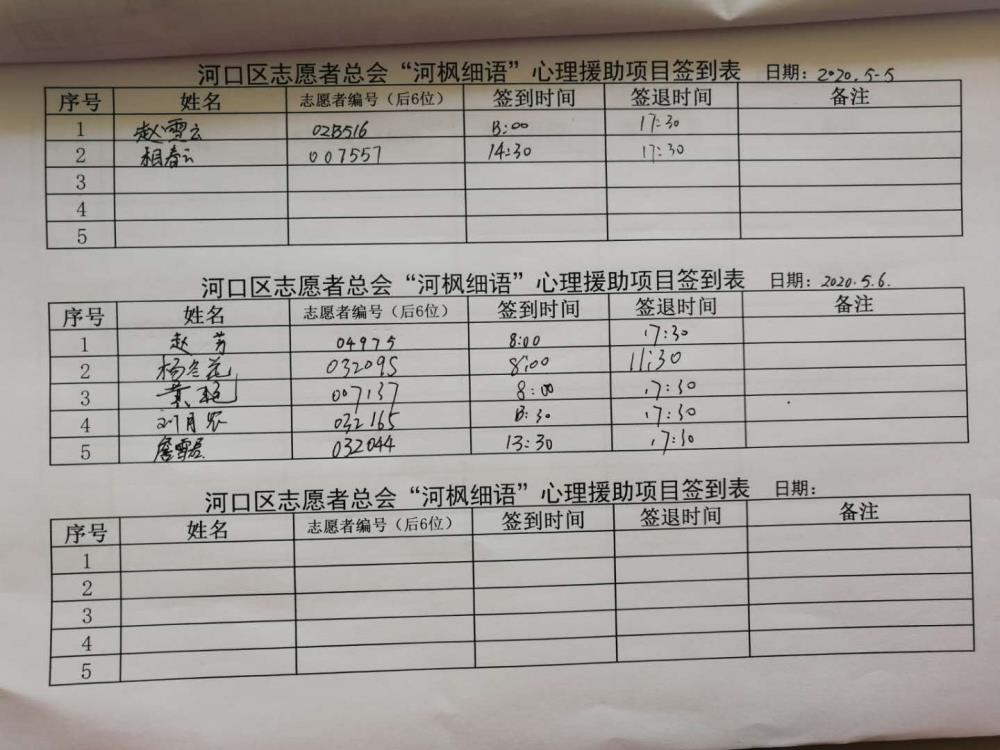 河口区志愿者总会“河枫细语”心理援助项目签到表 日期：2020.5-5
序号 姓名 志愿者编号（后6位） 签到时间 签退时间 备注
1 赵雪云 02B516 13:00 17:30
2 相春云 007557 14:30 17:30
3
4
5
河口区志愿者总会“河枫细语”心理援助项目签到表 日期：2020.5.6.
序号 姓名 志愿者编号（后6位） 签到时间 签退时间 备注
1 赵芳 04975 8:00 17:30
2 杨冬花 032095 8:00 11:30
3 黄艳 007137 8:00 17:30
4 刘月农 032165 13:30 17:30
5 詹雪君 032044 13:30 17:30
河口区志愿者总会“河枫细语”心理援助项目签到表 日期：
序号 姓名 志愿者编号（后6位） 签到时间 签退时间 备注
1
2
3
4
5